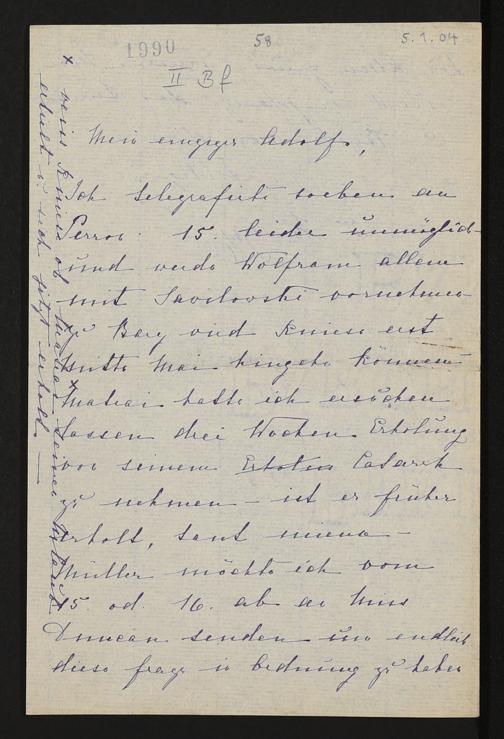 1990
58
5.1.04
II B f
Mein einziger Adolf,
Ich telegrafirte soeben an
15. leider unmöglich
und werde Wolfram allein
mit vornehmen
Berg und Kniese erst
Mitte Mai hingehe können
hatte ich ersuchen
lassen drei Wochen Erholung
vor seinem
zu nehmen – ist er früher
erholt, tant mieux –
Müller möchte ich vom
15. od. 16. ab an Miss
Duncan senden um endlich
diese frage in Ordnung zu haben
x weiss Kniese ob seines
erholt u. sich jetzt erholt. —